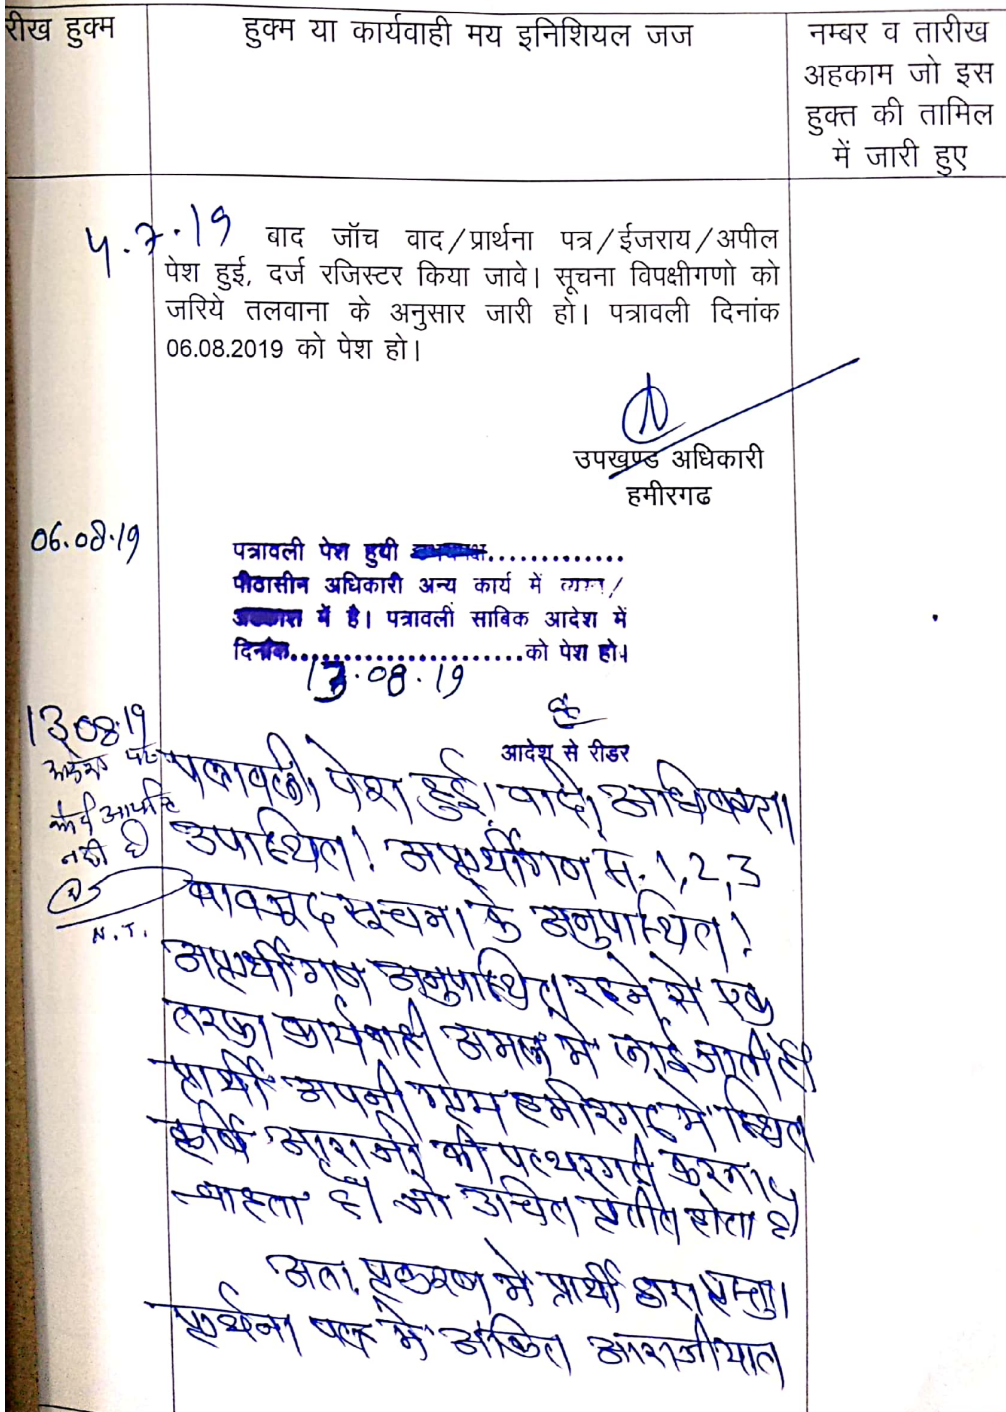 रीख हुक्म
हुक्म या कार्यवाही मय इनिशियल जज
नम्बर व तारीख
अहकाम जो इस
हुक्त की तामिल
में जारी हुए
4.7.19 बाद जॉच वाद/प्रार्थना पत्र/ईजराय/अपील
पेश हुई, दर्ज रजिस्टर किया जावे। सूचना विपक्षीगणो को
जरिये तलवाना के अनुसार जारी हो। पत्रावली दिनांक
06.08.2019 को पेश हो।
उपखण्ड अधिकारी
हमीरगढ
06.08.19
पत्रावली पेश हुयी ..............
पीठासीन अधिकारी अन्य कार्य में व्यस्त/
में है। पत्रावली साबिक आदेश में
दिनांक........................को पेश हो।
13.08.19
आदेश से रीडर
13.08.19
कोई आपत्ति
नही है
N.T.
पत्रावली पेश हुई। वादी अधिवक्ता
उपास्थित। अप्रार्थीगण सं. 1,2,3
बावजूद सूचना के अनुपास्थित।
अप्रार्थीगण अनुपास्थित रहने से एक
तरफा कार्यवाही अमल मे लाई जाती है।
प्रार्थी अपनी ग्राम हमीरगढ मे स्थित
कृषि आराजी की पत्थरगढी करना
चाहता है। जो उचित प्रतीत होता है।
अतः प्रकरण मे प्रार्थी द्वारा प्रस्तुत
प्रार्थना पत्र मे अंकित आराजीयात